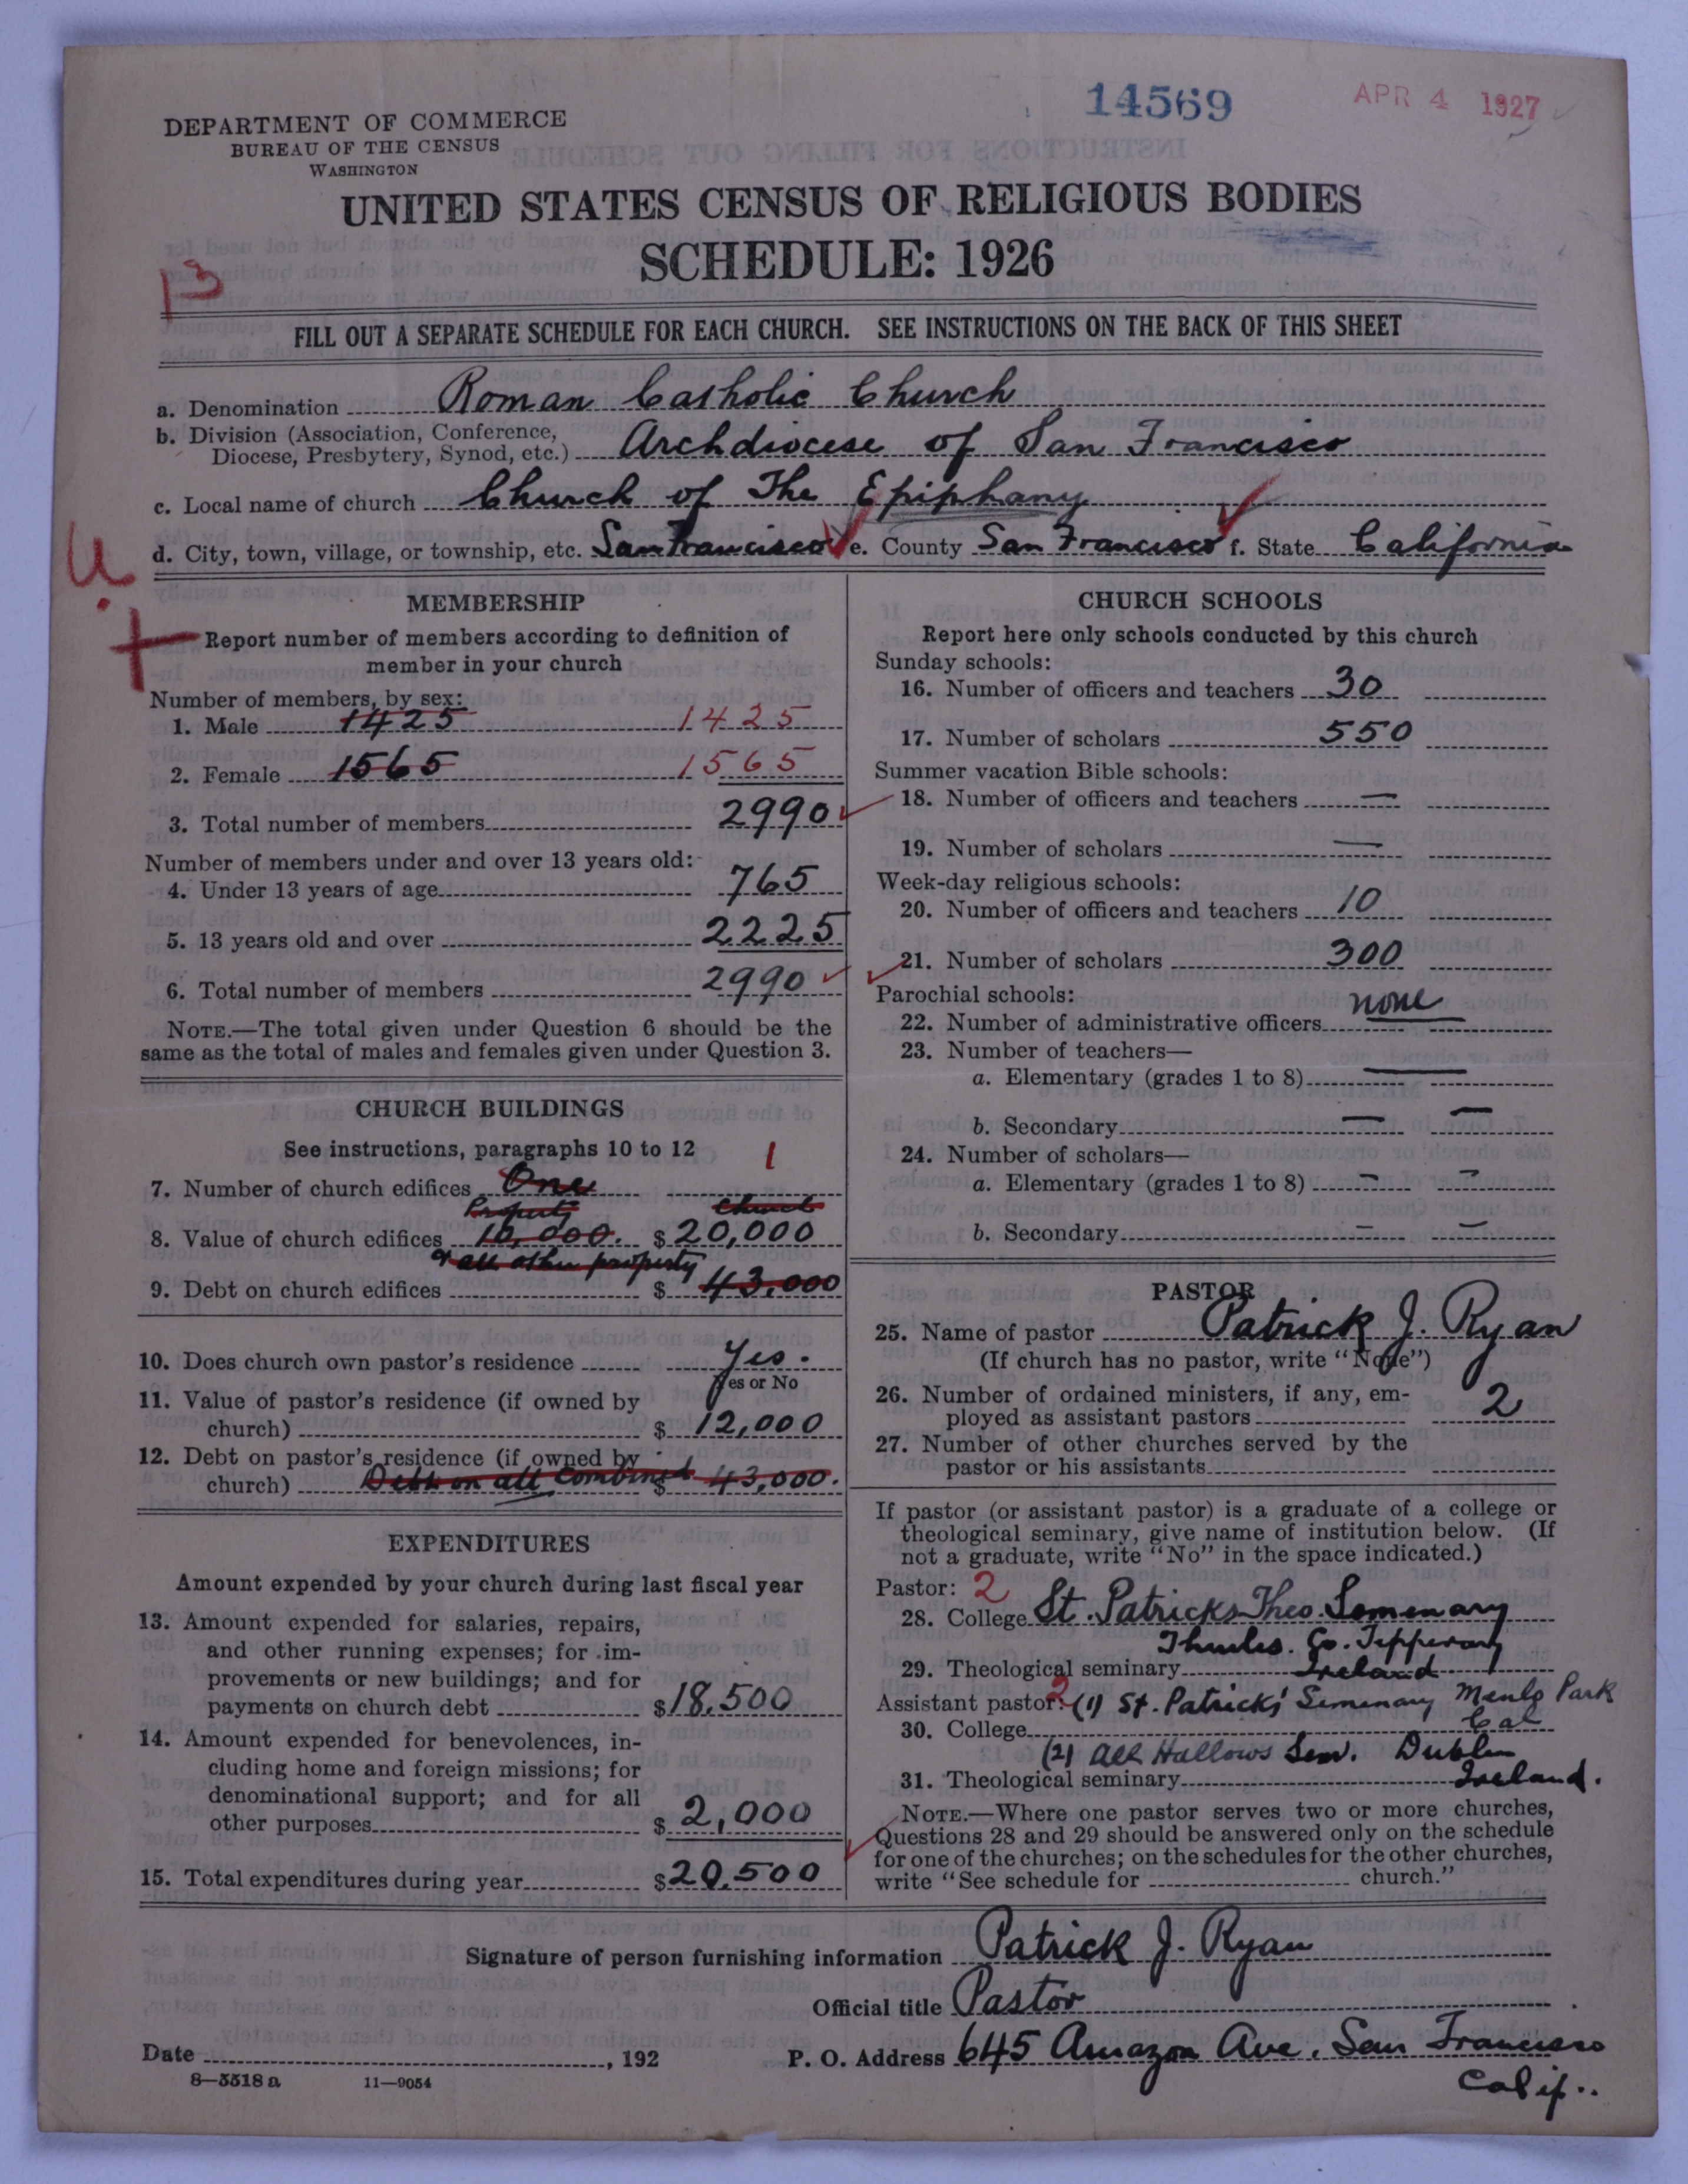 14569
APR 4 1927
DEPARTMENT OF COMMERCE
BUREAU OF THE CENSUS
WASHINGTON
UNITED STATES CENSUS OF RELIGIOUS BODIES
SCHEDULE: 1926
13
FILL OUT A SEPARATE SCHEDULE FOR EACH CHURCH. SEE INSTRUCTIONS ON THE BACK OF THIS SHEET
a. Denomination Roman Catholic Church
b. Division (Association, Conference,
Diocese, Presbytery, Synod, etc.) Archdiocese of San Francisco
c. Local name of church Church of The Epiphany
d. City, town, village, or township, etc. San Francisco e. County San Francisco f. State California
U
MEMBERSHIP
Report number of members according to definition of
member in your church
Number of members, by sex:
1. Male 1425 1425
2. Female 1565 1565
3. Total number of members 2990
Number of members under and over 13 years old:
4. Under 13 years of age 765
5. 13 years old and over 2225
6. Total number of members 2990
NOTE.—The total given under Question 6 should be the
same as the total of males and females given under Question 3.
CHURCH BUILDINGS
See instructions, paragraphs 10 to 12
1
7. Number of church edifices One
Property Church
8. Value of church edifices 10,000. $ 20,000
& all other property
9. Debt on church edifices $ 43,000
10. Does church own pastor's residence Yes.
Yes or No
11. Value of pastor's residence (if owned by
church) $ 12,000
12. Debt on pastor's residence (if owned by
church) Debt on all combined $ 43,000.
EXPENDITURES
Amount expended by your church during last fiscal year
13. Amount expended for salaries, repairs,
and other running expenses; for im-
provements or new buildings; and for
payments on church debt $ 18,500
14. Amount expended for benevolences, in-
cluding home and foreign missions; for
denominational support; and for all
other purposes $ 2,000
15. Total expenditures during year $ 20,500
CHURCH SCHOOLS
Report here only schools conducted by this church
Sunday schools:
16. Number of officers and teachers 30
17. Number of scholars 550
Summer vacation Bible schools:
18. Number of officers and teachers —
19. Number of scholars —
Week-day religious schools:
20. Number of officers and teachers 10
21. Number of scholars 300
Parochial schools:
22. Number of administrative officers none
23. Number of teachers—
a. Elementary (grades 1 to 8) —
b. Secondary — —
24. Number of scholars—
a. Elementary (grades 1 to 8) — —
b. Secondary — —
PASTOR
25. Name of pastor Patrick J. Ryan
(If church has no pastor, write "None")
26. Number of ordained ministers, if any, em-
ployed as assistant pastors 2
27. Number of other churches served by the
pastor or his assistants
If pastor (or assistant pastor) is a graduate of a college or
theological seminary, give name of institution below. (If
not a graduate, write "No" in the space indicated.)
Pastor: 2
28. College St. Patricks Theo. Semenary
Thurles. Co. Tipperary
29. Theological seminary Ireland
Assistant pastor: 2 (1) St. Patricks' Seminary Menlo Park
30. College Cal
(2) All Hallows Sem. Dublin
31. Theological seminary Ireland.
NOTE.—Where one pastor serves two or more churches,
Questions 28 and 29 should be answered only on the schedule
for one of the churches; on the schedules for the other churches,
write "See schedule for church."
Signature of person furnishing information Patrick J. Ryan
Official title Pastor
Date , 192 P. O. Address 645 Amazon Ave. San Francisco
8—5518 a 11—9054 Calif..